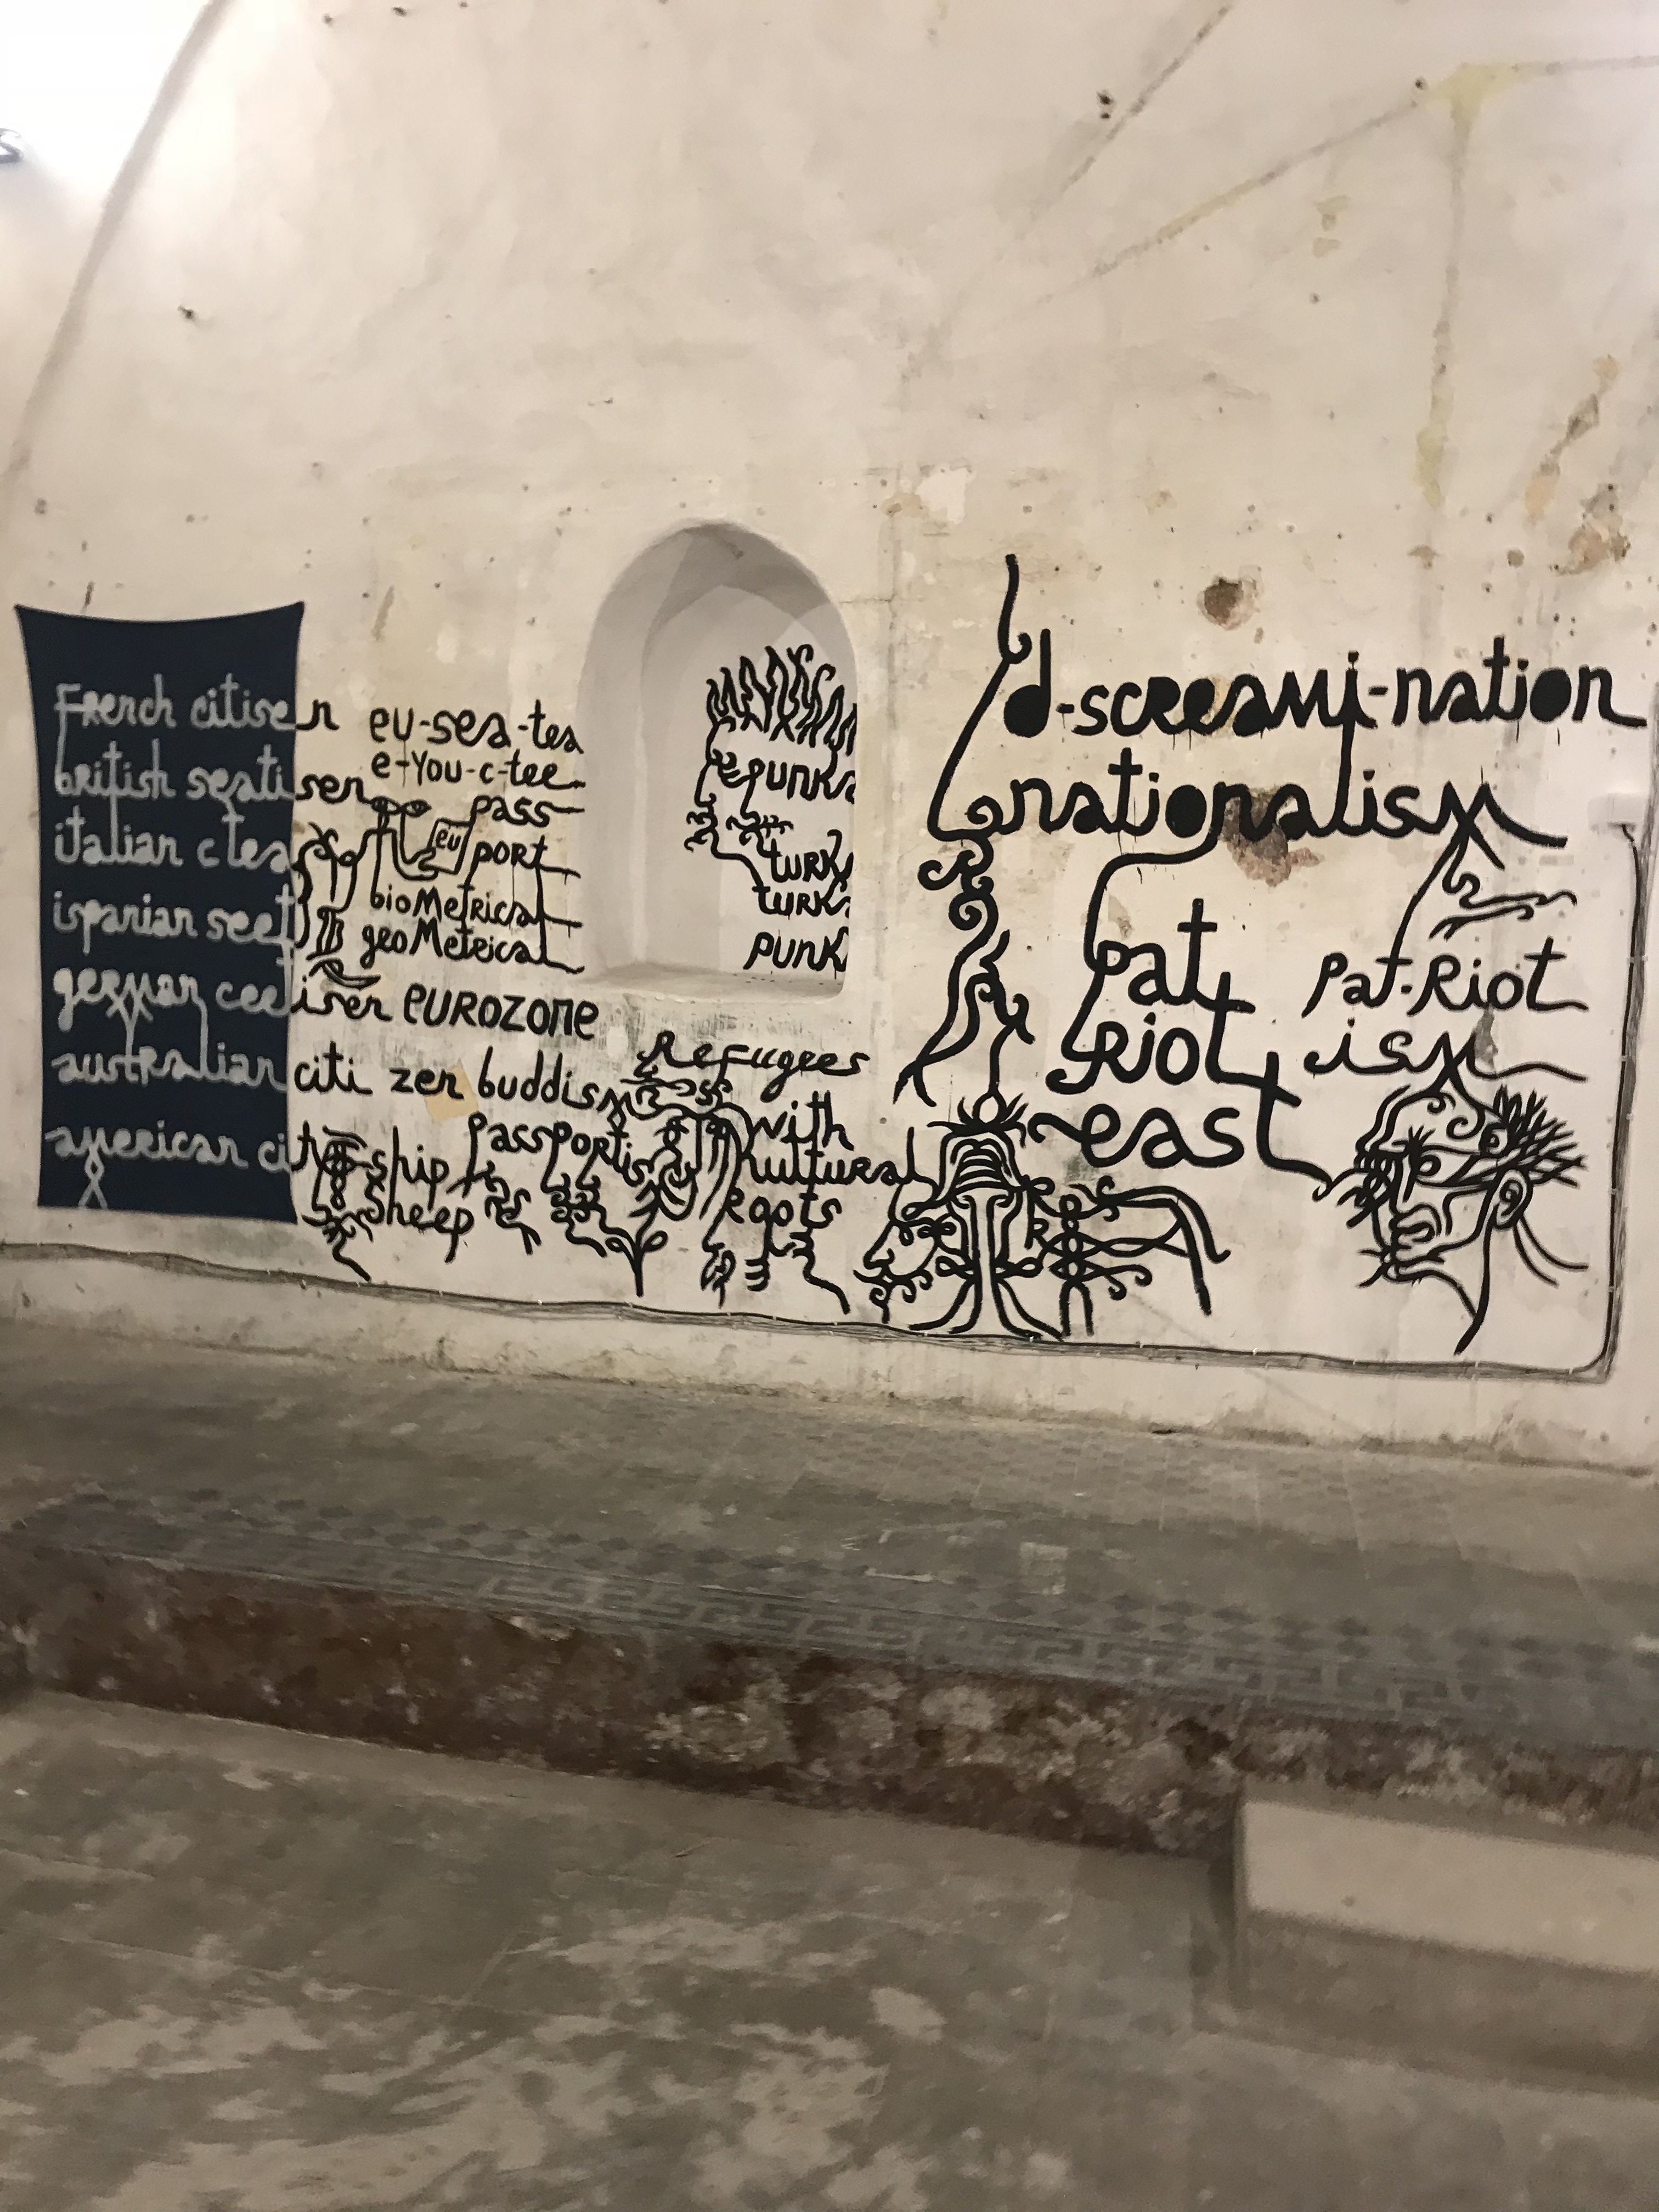 French citisen
british seatisen
italian c tea
ispanian seet
german ceetisen
australian citi zen buddism
american citi ship
sheep
eu-sea-tea
e-you-c-tee
pass
eu port
bioMetrical
geoMetrical
eurozone
Refugees
with
kultural
Roots
passportis
punk
turk
turk
punk
d-screami-nation
nationalism
pat
riot
east
pat-Riot
ism